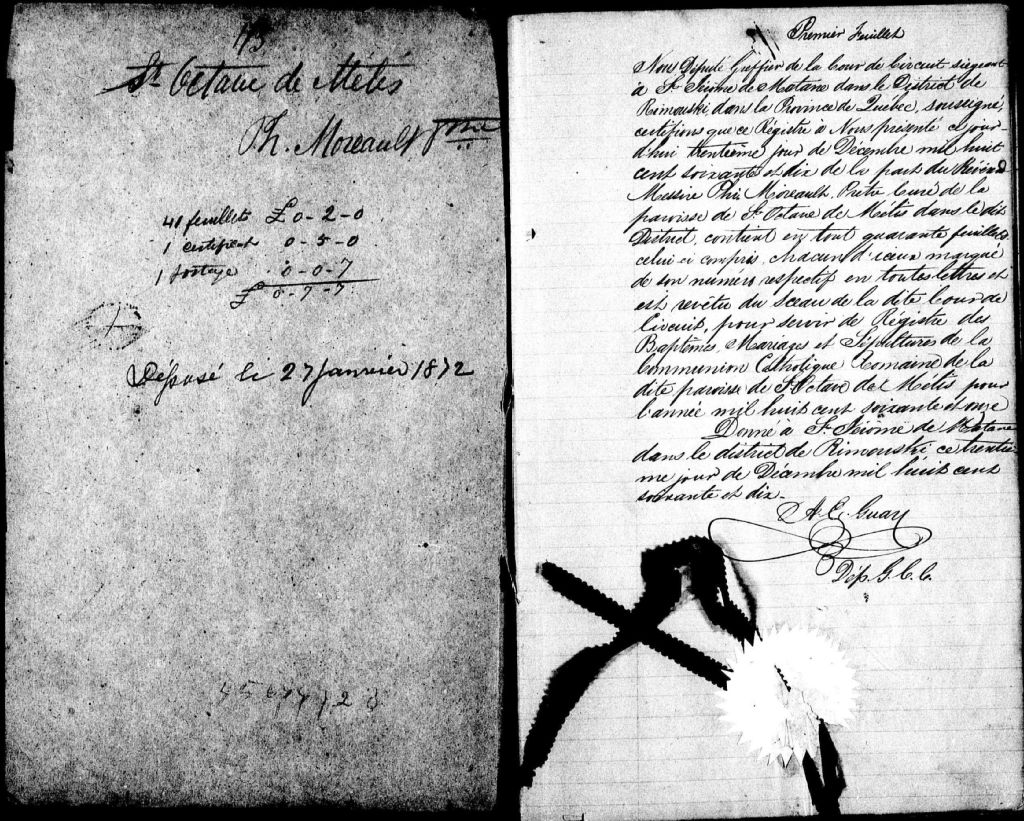 St. Octave de Métis
Ph. Moreault Ptre
41 feuillets £ 0-2-0
1 certificat 0-5-0
1 postage 0-0-7
£ 0-7-7
Déposé le 27 Janvier 1872
Premier Feuillet
Nous Député Greffier de la Cour de Circuit siégeant
à St. Jérôme de Matane dans le District de
Rimouski, dans la Province de Québec, soussigné,
certifions que ce Régistre à Nous présenté ce jour-
d'hui trentième jour de Décembre mil huit
cent soixante et dix de la part du Révérend
Messire Ph. Moreault, Prêtre Curé de la
paroisse de St. Octave de Métis dans le dit
District, contient en tout quarante feuillets
celui ci compris, chacun d'iceux marqué
de son numéro respectif en toutes lettres et
est revêtu du Sceau de la dite Cour de
Circuit, pour servir de Régistre des
Baptêmes, Mariages et Sépultures de la
Communion Catholique Romaine de la
dite paroisse de St. Octave de Métis pour
l'année mil huit cent soixante et onze
Donné à St. Jérôme de Matane
dans le district de Rimouski, ce trentiè-
me jour de Décembre mil huit cent
soixante et dix.-
A. E. Guay
Dép. G. C. C.